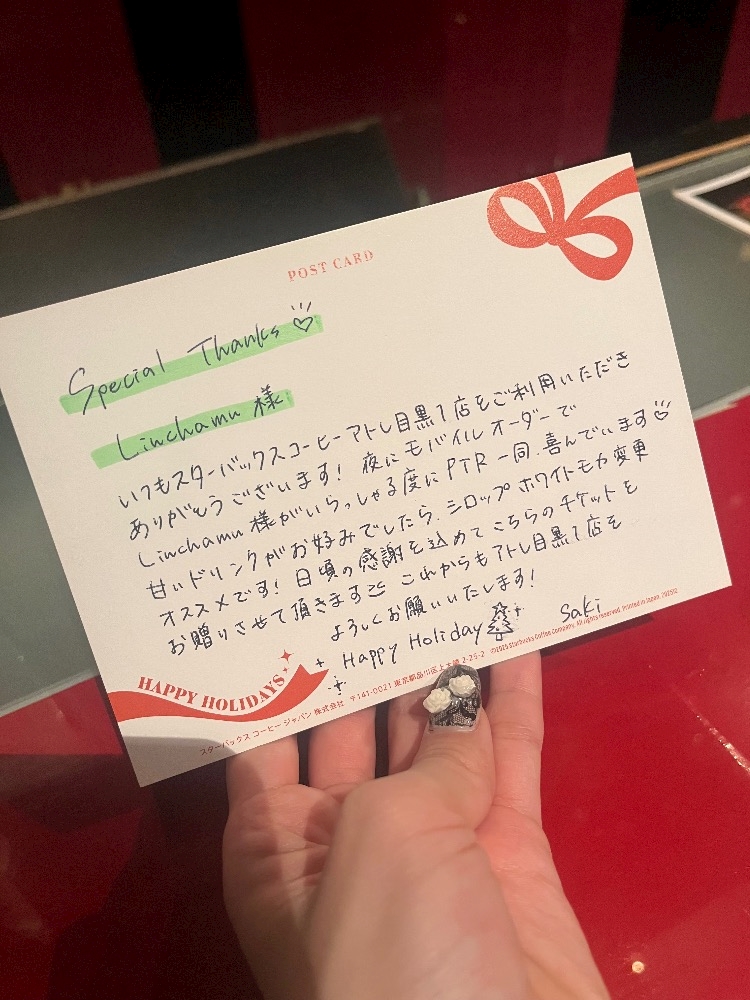 POST CARD
Special Thanks
Linchamu 様
いつもスターバックスコーヒーアトレ目黒1店をご利用いただき
ありがとうございます! 夜にモバイルオーダーで
Linchamu 様がいらっしゃる度にPTR一同、喜んでいます
甘いドリンクがお好みでしたら、シロップ ホワイトモカ変更
オススメです! 日頃の感謝を込めてこちらのチケットを
お贈りさせて頂きます これからもアトレ目黒1店を
よろしくお願いいたします!
Happy Holiday
Saki
HAPPY HOLIDAYS
スターバックス コーヒー ジャパン 株式会社 〒141-0021 東京都品川区上大崎 2-25-2 ©2025 Starbucks Coffee Company. All rights reserved. Printed in Japan.